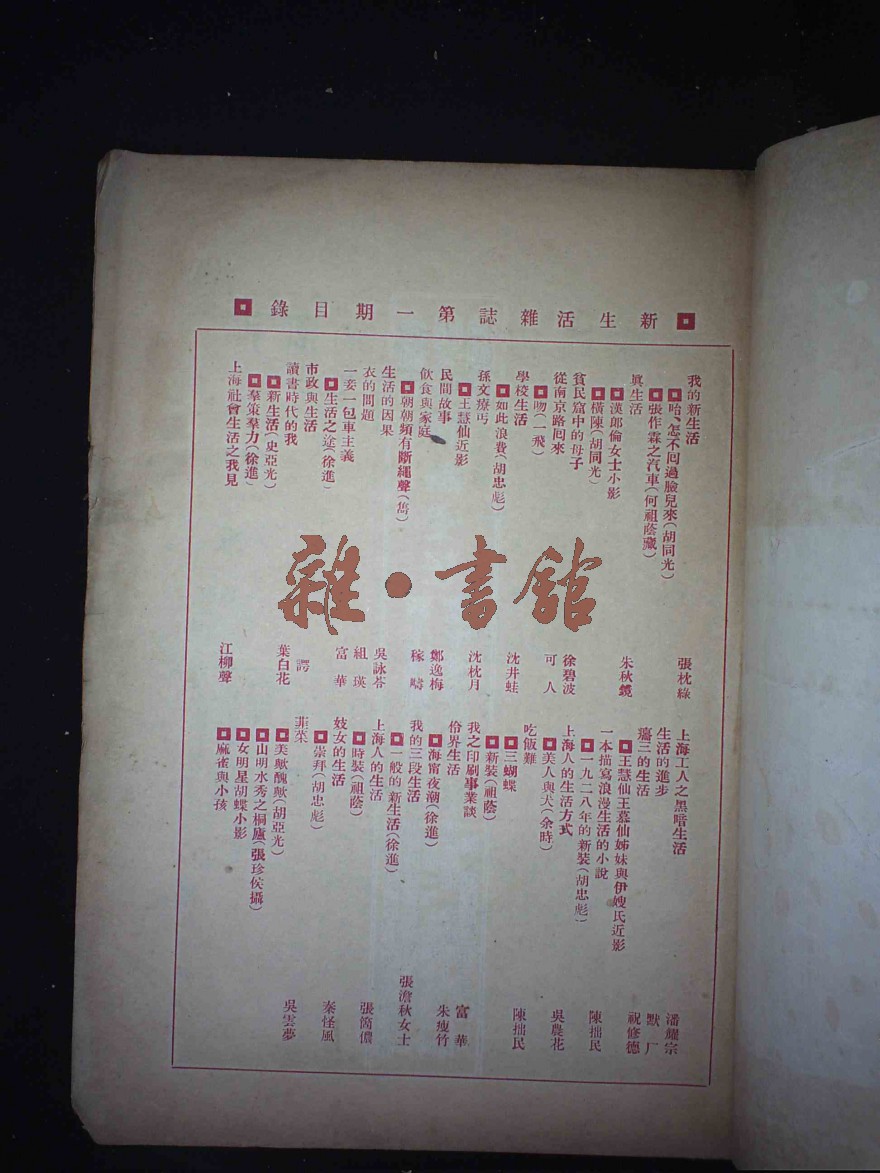 新生活雜誌第一期目錄
我的新生活 張枕綠
哈、怎不囘過臉兒來(胡同光)
張作霖之汽車(何祖蔭藏)
眞生活 朱秋鏡
漢郎倫女士小影
橫陳(胡同光)
貧民窟中的母子 徐碧波
從南京路囘來 可人
吻(一飛)
學校生活 沈井蛙
如此浪費(胡忠彪)
孫文療丐 沈枕月
王慧仙近影
民間故事 鄭逸梅
飲食與家庭 稼疇
朝朝頻有斷繩聲(雋)
生活的因果 吳詠苓
衣的問題 組瑛
一妾一包車主義 富華
生活之途(徐進)
市政與生活 諤
讀書時代的我 葉白花
新生活(史亞光)
羣策羣力(徐進)
上海社會生活之我見 江柳聲
上海工人之黑暗生活 潘耀宗
生活的進步 默厂
癟三的生活 祝修德
王慧仙王慕仙姊妹與伊嫂氏近影
一本描寫浪漫生活的小說 陳拙民
一九二八年的新裝(胡忠彪)
上海人的生活方式 吳農花
美人與犬(余時)
吃飯難 陳拙民
三蝴蝶
新裝(祖蔭)
我之印刷事業談 富華
伶界生活 朱瘦竹
海甯夜潮(徐進)
我的三段生活 張澹秋女士
一般的新生活(徐進)
上海人的生活 張簡儂
時裝(祖蔭)
妓女的生活 秦怪風
崇拜(胡忠彪)
韮菜 吳雲夢
美歟醜歟(胡亞光)
山明水秀之桐廬(張珍侯攝)
女明星胡蝶小影
麻雀與小孩
雜·書館